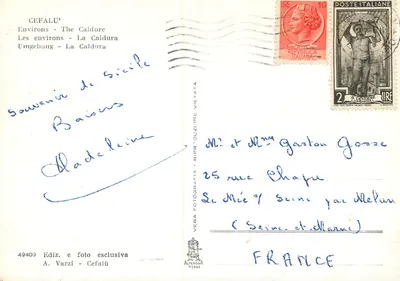 CEFALU'
Environs - The Caldore
Les environs - La Caldura
Umgebung - La Caldura
POSTE ITALIANE
2 LIRE
Souvenir de Sicile
Baisers
Madeleine
Mr et Mme Gaston Gosse
25 rue Chapu
Le Mée s/ Seine par Melun
(Seine-et-Marne)
FRANCE
VERA FOTOGRAFIA - RIPRODUZIONE VIETATA
49409 Ediz. e foto esclusiva
A. Varzi - Cefalù